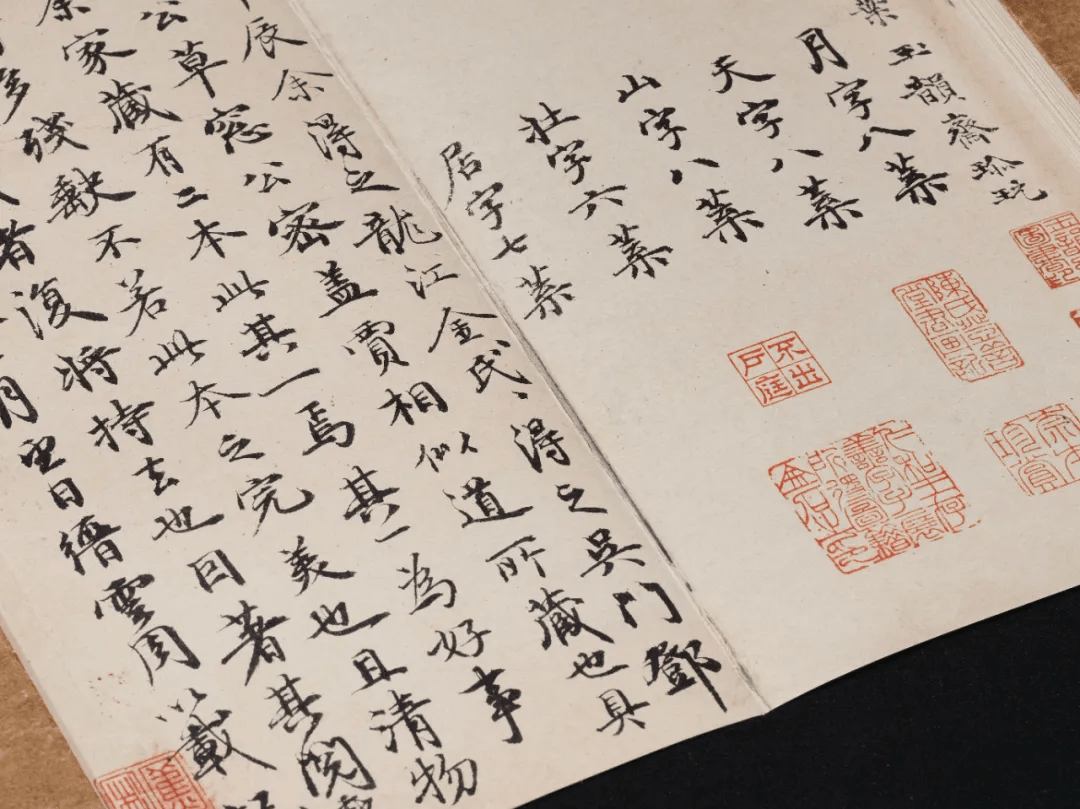 葉 玉韻齋珍玩
月字八葉
天字八葉
山字八葉
壯字六葉
居字七葉
不出戶庭
辰余得之龍江金氏、得之吳門鄧
公草窓公密盖賈相似道所藏也具
余家藏有二本此其一焉其一為好事
多殘缺不若此本之完美也且清物
者復將持去也因著其閱
月望日縉雲周以載